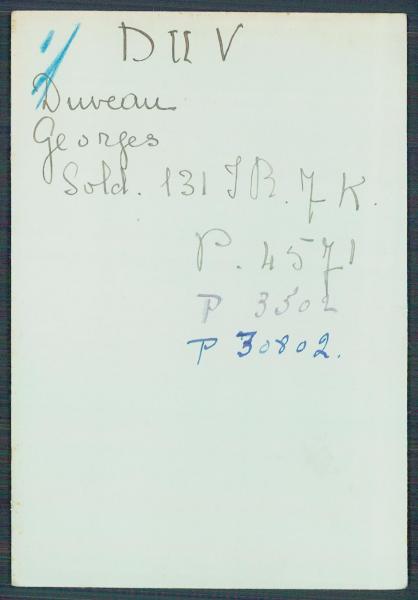 DUV
Duveau
Georges
Sold. 131 IR. 7 K.
P. 4571
P 3502
P 30802.